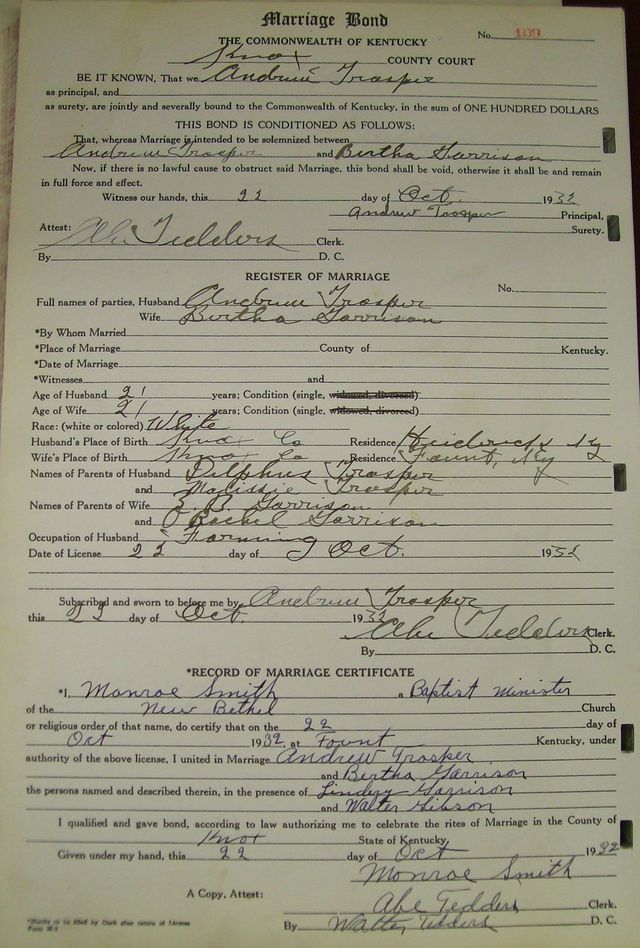 Marriage Bond
No. 109
THE COMMONWEALTH OF KENTUCKY
Knox COUNTY COURT
BE IT KNOWN, That we Andrew Trosper
as principal, and
as surety, are jointly and severally bound to the Commonwealth of Kentucky, in the sum of ONE HUNDRED DOLLARS
THIS BOND IS CONDITIONED AS FOLLOWS:
That, whereas Marriage is intended to be solemnized between
Andrew Trosper and Bertha Garrison
Now, if there is no lawful cause to obstruct said Marriage, this bond shall be void, otherwise it shall be and remain
in full force and effect.
Witness our hands, this 22 day of Oct. 1932
Andrew Trosper Principal,
Surety.
Attest:
Abe Tedders Clerk.
By D. C.
REGISTER OF MARRIAGE
No.
Full names of parties, Husband Andrew Trosper
Wife Bertha Garrison
*By Whom Married
*Place of Marriage County of Kentucky.
*Date of Marriage
*Witnesses and
Age of Husband 21 years; Condition (single, widowed, divorced)
Age of Wife 21 years; Condition (single, widowed, divorced)
Race: (white or colored) White
Husband's Place of Birth Knox Co Residence Heidrick Ky
Wife's Place of Birth Knox Co Residence Fount, Ky
Names of Parents of Husband Dulphus Trosper
and Trosper
Names of Parents of Wife Garrison
and Rachel Garrison
Occupation of Husband Farming
Date of License 22 day of Oct. 1932
Subscribed and sworn to before me by Andrew Trosper
this 22 day of Oct. 1932
Abe Tedders Clerk.
By D. C.
*RECORD OF MARRIAGE CERTIFICATE
*I, Monroe Smith a Baptist Minister
of the New Bethel Church
or religious order of that name, do certify that on the 22 day of
Oct 1932, at Fount Kentucky, under
authority of the above license, I united in Marriage Andrew Trosper
and Bertha Garrison
the persons named and described therein, in the presence of Lindery Garrison
and Walter Gibson
I qualified and gave bond, according to law authorizing me to celebrate the rites of Marriage in the County of
Knox State of Kentucky
Given under my hand, this 22 day of Oct 1932
Monroe Smith
A Copy, Attest:
Abe Tedders Clerk.
By Walter Tedders D. C.
*Blanks to be filled by Clerk after return of License